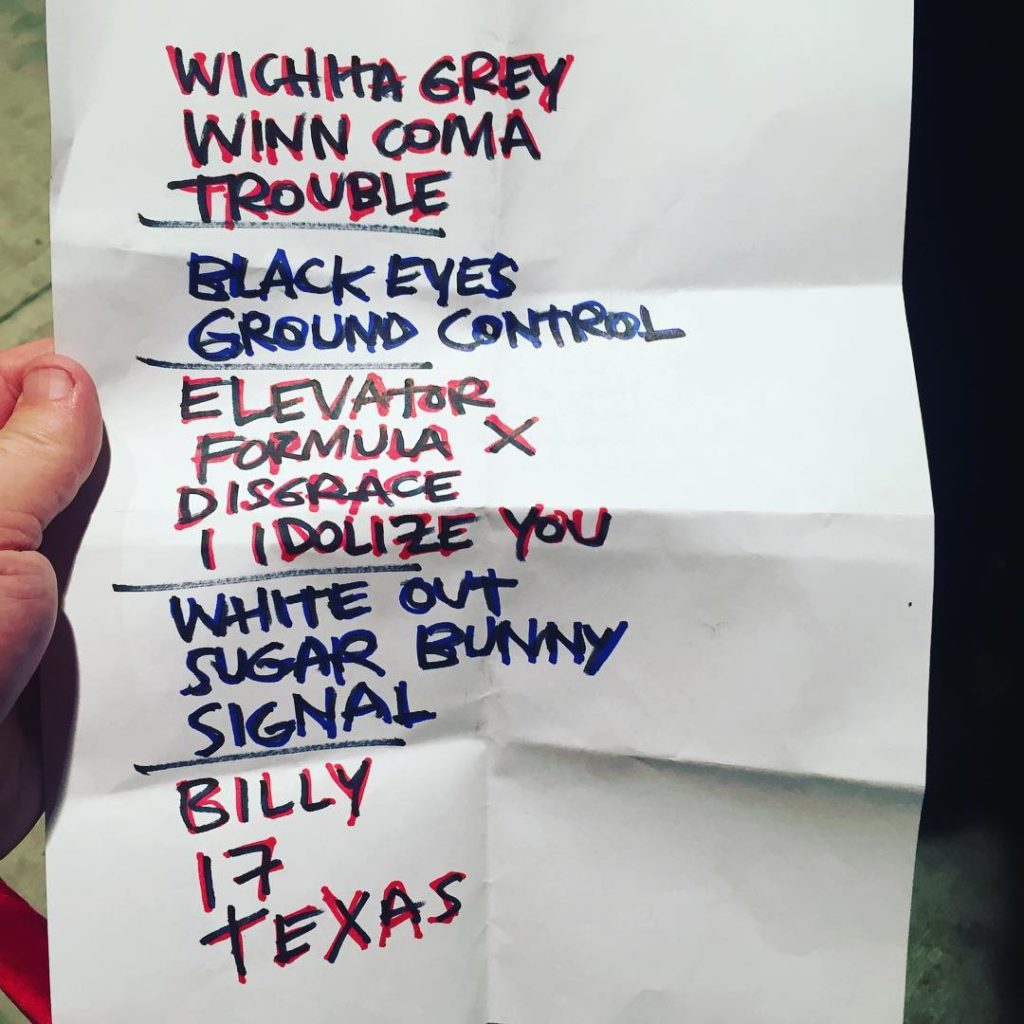 WICHITA GREY
WINN COMA
TROUBLE
BLACK EYES
GROUND CONTROL
ELEVATOR
FORMULA X
DISGRACE
I IDOLIZE YOU
WHITE OUT
SUGAR BUNNY
SIGNAL
BILLY
17
TEXAS